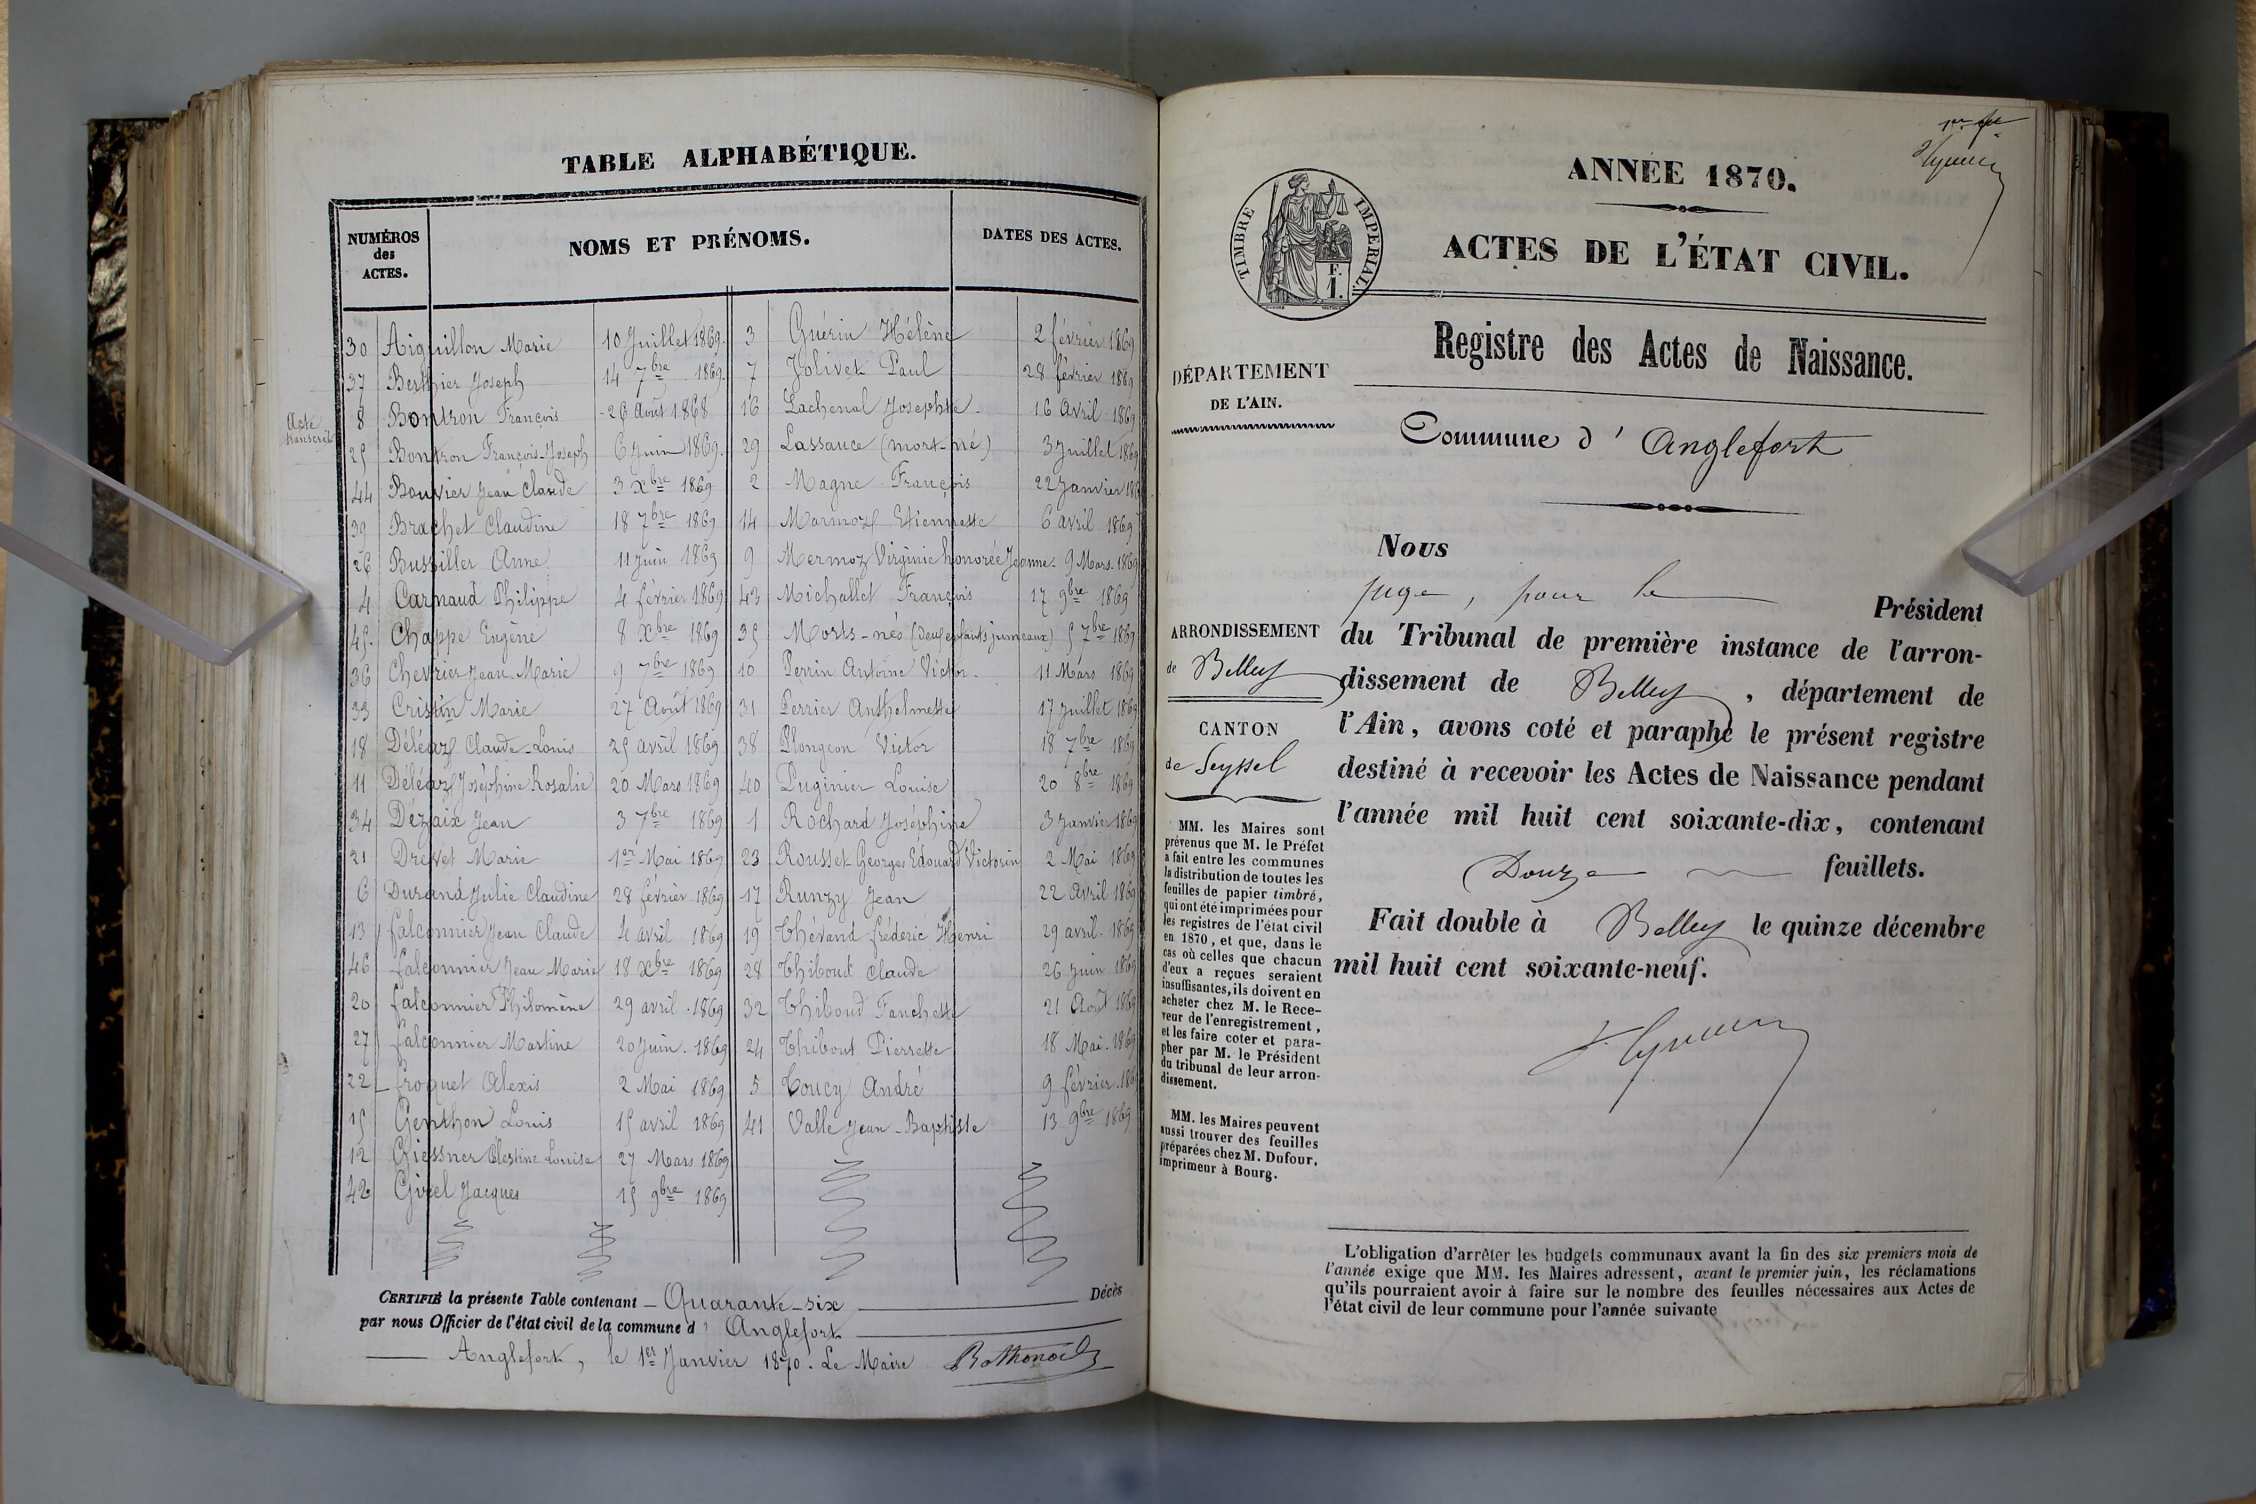 TABLE ALPHABÉTIQUE.
NUMÉROS
des
ACTES.
NOMS ET PRÉNOMS.
DATES DES ACTES.
30 Aiguillon Marie 10 Juillet 1869.
37 Berthier Joseph 14 7bre 1869.
Acte
transcrit
8 Bontron François 26 Août 1868
25 Bontron François-Joseph 6 Juin 1869.
44 Bouvier Jean Claude 3 Xbre 1869
39 Brachet Claudine 18 7bre 1869
26 Bussiller Anne 11 Juin 1869
4 Carnaud Philippe 4 février 1869
45. Chappe Eugène 8 Xbre 1869
36 Chevrier Jean-Marie 9 7bre 1869
33 Cristin Marie 27 Août 1869
18 Déléaz Claude-Louis 25 avril 1869
11 Déléaz Joséphine Rosalie 20 Mars 1869
34 Dézaix Jean 3 7bre 1869
21 Drevet Marie 1er Mai 1869
6 Durand Julie Claudine 28 février 1869
13 falconnier Jean Claude 4 avril 1869
46 falconnier Jean Marie 18 Xbre 1869
20 falconnier Philomène 29 avril 1869
27 falconnier Martine 20 Juin. 1869
22 froquet Alexis 2 Mai 1869
15 Genthon Louis 15 avril 1869
12 Giessner Célestine Louise 27 Mars 1869
42 Girel Jacques 15 9bre 1869
3 Guérin Hélène 2 février 1869
7 Jolivet Paul 28 février 1869
16 Lachenal Josephte 16 Avril 1869
29 Lassauce (mort-né) 3 Juillet 1869
2 Magne François 22 Janvier 186
14 Marmoz Etiennette 6 avril 1869
9 Mermoz Virginie honorée Jeanne. 9 Mars. 1869
43 Michallet François 17 9bre 1869
35 Morts-nés (Deux enfants jumeaux) 5 7bre 1869
10 Perrin Antoine Victor. 11 Mars 1869
31 Perrier Anthelmette 17 Juillet 1869
38 Plongeon Victor 18 7bre 1869
40 Puginier Louise 20 8bre 1869
1 Rochard Joséphine 3 Janvier 1869
23 Rousset Georges Edouard Victorin 2 Mai 1869
17 Runzy Jean 22 Avril 1869
19 Thévand frédéric Henri 29 avril. 1869
28 Thibout Claude 26 Juin 1869
32 Thiboud Fanchette 21 Août 1869
24 Thibout Pierrette 18 Mai. 1869
5 Toucy André 9 février. 186
41 Valle Jean-Baptiste 13 9bre 1869
CERTIFIÉ la présente Table contenant Quarante-six Décès
par nous Officier de l'état civil de la commune d' Anglefort
Anglefort, le 1er Janvier 1870. Le Maire
ANNÉE 1870.
TIMBRE IMPERIAL.
F.
1.
ACTES DE L'ÉTAT CIVIL.
Registre des Actes de Naissance.
DÉPARTEMENT
DE L'AIN.
Commune d' Anglefort
ARRONDISSEMENT
de Belley
CANTON
de Seyssel
MM. les Maires sont
prévenus que M. le Préfet
a fait entre les communes
la distribution de toutes les
feuilles de papier timbré,
qui ont été imprimées pour
les registres de l'état civil
en 1870, et que, dans le
cas où celles que chacun
d'eux a reçues seraient
insuffisantes, ils doivent en
acheter chez M. le Rece-
veur de l'enregistrement,
et les faire coter et para-
pher par M. le Président
du tribunal de leur arron-
dissement.
MM. les Maires peuvent
aussi trouver des feuilles
préparées chez M. Dufour,
imprimeur à Bourg.
Nous
juge, pour le Président
du Tribunal de première instance de l'arron-
dissement de Belley, département de
l'Ain, avons coté et paraphé le présent registre
destiné à recevoir les Actes de Naissance pendant
l'année mil huit cent soixante-dix, contenant
Douze feuillets.
Fait double à Belley le quinze décembre
mil huit cent soixante-neuf.
L'obligation d'arrêter les budgets communaux avant la fin des six premiers mois de
l'année exige que MM. les Maires adressent, avant le premier juin, les réclamations
qu'ils pourraient avoir à faire sur le nombre des feuilles nécessaires aux Actes de
l'état civil de leur commune pour l'année suivante